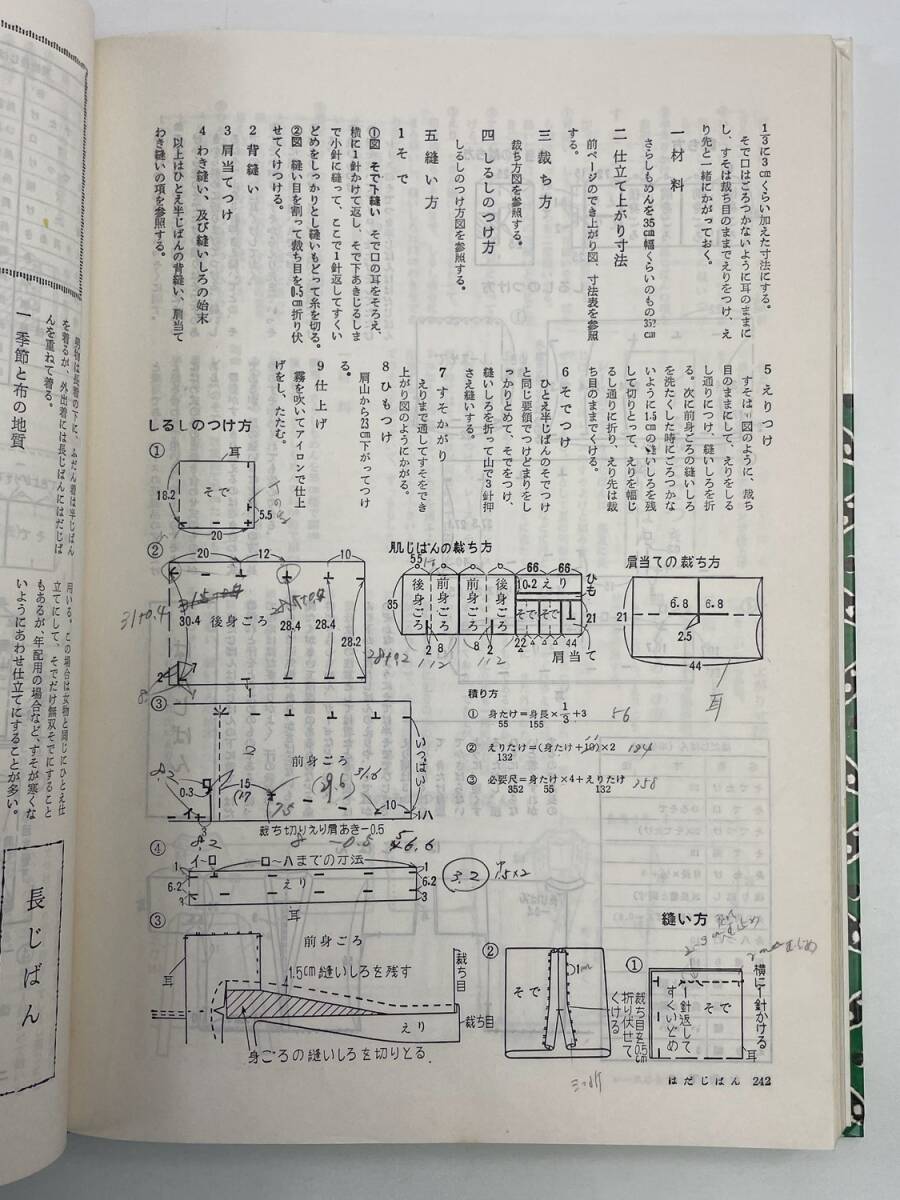 1/3に3cmくらい加えた寸法にする。
そで口はごろつかないように耳のままに
し、すそは裁ち目のままでえりをつけ、え
り先と一緒にかがっておく。
一 材料
さらしもめんを35cm幅くらいのもの352cm
二 仕立て上がり寸法
前ページのでき上がり図、寸法表を参照
する。
三 裁ち方
裁ち方図を参照する。
四 しるしのつけ方
しるしのつけ方図を参照する。
五 縫い方
1 そで
①図 そで下縫い そで口の耳をそろえ、
横に1針かけて返し、そで下あきじるしま
で小針に縫って、ここで1針返してすくい
どめをしっかりとし縫いもどって糸を切る。
②図 縫い目を割って裁ち目を0.5cm折り伏
せてくけつける。
2 背縫い
3 肩当てつけ
4 わき縫い、及び縫いしろの始末
以上はひとえ半じばんの背縫い、肩当て
わき縫いの項を参照する。
5 えりつけ
すそは 図のように、裁ち
目のままにして、えりをしる
し通りにつけ、縫いしろを折
る。次に前身ごろの縫いしろ
を洗たくした時にごろつかな
いように1.5cmの縫いしろを残
して切りとって、えりを幅じ
るし通りに折り、えり先は裁
ち目のままでくける。
6 そでつけ
ひとえ半じばんのそでつけ
と同じ要領でつけどまりをし
っかりとめて、そでをつけ、
縫いしろを折って山で3針押
さえ縫いする。
7 すそかがり
えりまで通してすそをでき
上がり図のようにかがる。
8 ひもつけ
肩山から23cm下がってつけ
る。
9 仕上げ
霧を吹いてアイロンで仕上
げをし、たたむ。
しるしのつけ方
①
耳
18.2
そで
5.5
20
②
20
12
10
30.4
後身ごろ
28.4
28.4
28.2
2
31+0.4
肌じばんの裁ち方
55
66
66
35
後身ごろ
前身ごろ
前身ごろ
後身ごろ
10.2
えり
ひも
そで
そで
21
2
8
8
2
22
44
肩当て
肩当ての裁ち方
21
6.8
6.8
2.5
44
耳
積り方
① 身たけ=身長×1/3+3
55 155
56
② えりたけ=(身たけ+10)×2
132
③ 必要尺=身たけ×4+えりたけ
352 55 132
258
③
前身ごろ
いっぱい
0.3
ロ
15
イ
3
10
ハ
裁ち切りえり肩あき−0.5
④
イ〜ロ
ロ〜ハまでの寸法
1
6.2
3
えり
1
6.2
3
耳
3.2
③
前身ごろ
耳
1.5cm縫いしろを残す
裁ち目
裁ち目
えり
身ごろの縫いしろを切りとる.
縫い方
②
そで
裁ち目を0.5cm
折り伏せて
くける
①
横に1針かける
そで
1針返して
すくいどめ
耳
はだじばん 242
男物は長着の下に、ふだん着は半じばん
を着るが、外出着には長じばんにはだじば
んを重ねて着る。
一 季節と布の地質
用いる。この場合は女物と同じにひとえ仕
立てにして、そでだけ無双そでにすること
もあるが、年配用の場合など、すそが寒くな
いようにあわせ仕立てにすることが多い。
長じばん